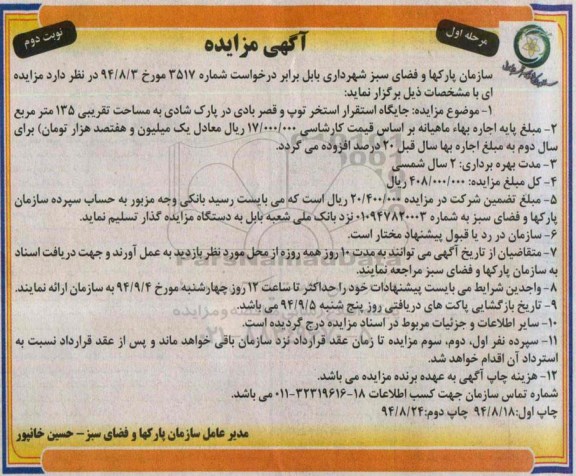 مرحله اول
آگهی مزایده
نوبت دوم
سازمان پارکها و فضای سبز شهرداری بابل برابر درخواست شماره ۳۵۱۷ مورخ ۹۴/۸/۳ در نظر دارد مزایده
ای با مشخصات ذیل برگزار نماید:
۱- موضوع مزایده: جایگاه استقرار استخر توپ و قصر بادی در پارک شادی به مساحت تقریبی ۱۳۵ متر مربع
۲- مبلغ پایه اجاره بهاء ماهیانه بر اساس قیمت کارشناسی ۱۷/۰۰۰/۰۰۰ ریال معادل یک میلیون و هفتصد هزار تومان) برای
سال دوم به مبلغ اجاره بها سال قبل ۲۰ درصد افزوده می گردد.
۳- مدت بهره برداری: ۲ سال شمسی
۴- کل مبلغ مزایده: ۴۰۸/۰۰۰/۰۰۰ ریال
۵- مبلغ تضمین شرکت در مزایده ۲۰/۴۰۰/۰۰۰ ریال است که می بایست رسید بانکی وجه مزبور به حساب سپرده سازمان
پارکها و فضای سبز به شماره ۰۱۰۹۴۷۸۲۰۰۰۳ نزد بانک ملی شعبه بابل به دستگاه مزایده گذار تسلیم نماید.
۶- سازمان در رد یا قبول پیشنهاد مختار است.
۷- متقاضیان از تاریخ آگهی می توانند به مدت ۱۰ روز همه روزه از محل مورد نظر بازدید به عمل آورند و جهت دریافت اسناد
به سازمان پارکها و فضای سبز مراجعه نمایند.
۸- واجدین شرایط می بایست پیشنهادات خود را حداکثر تا ساعت ۱۲ روز چهارشنبه مورخ ۹۴/۹/۴ به سازمان ارائه نمایند.
۹- تاریخ بازگشایی پاکت های دریافتی روز پنج شنبه ۹۴/۹/۵ می باشد.
۱۰- سایر اطلاعات و جزئیات مربوط در اسناد مزایده درج گردیده است.
۱۱- سپرده نفر اول، دوم، سوم مزایده تا زمان عقد قرارداد نزد سازمان باقی خواهد ماند و پس از عقد قرارداد نسبت به
استرداد آن اقدام خواهد شد.
۱۲- هزینه چاپ آگهی به عهده برنده مزایده می باشد.
شماره تماس سازمان جهت کسب اطلاعات ۱۸-۳۲۳۱۹۶۱۶-۰۱۱ می باشد.
چاپ اول: ۹۴/۸/۱۸ چاپ دوم: ۹۴/۸/۲۴
مدیر عامل سازمان پارکها و فضای سبز – حسین خانپور
ParsNamadData